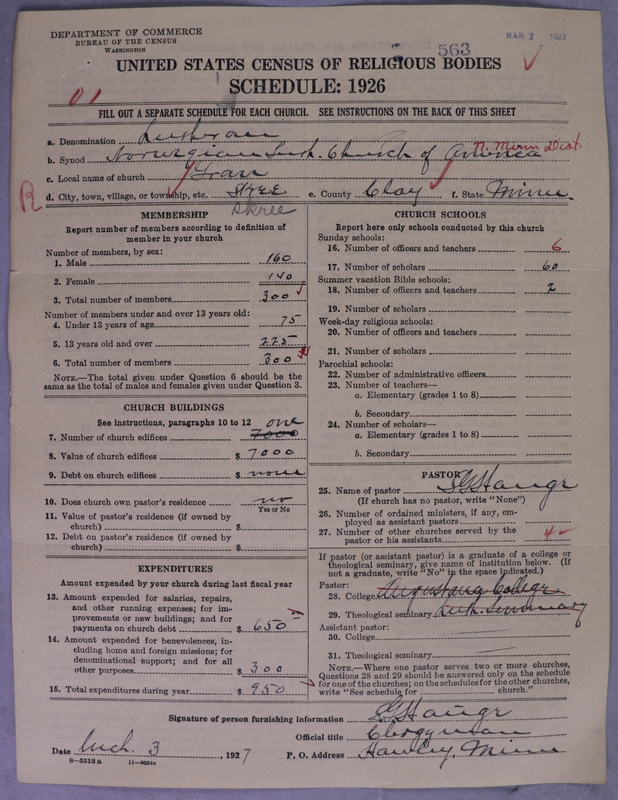 DEPARTMENT OF COMMERCE
BUREAU OF THE CENSUS
WASHINGTON
563
MAR 3 1927
UNITED STATES CENSUS OF RELIGIOUS BODIES
SCHEDULE: 1926
01
FILL OUT A SEPARATE SCHEDULE FOR EACH CHURCH. SEE INSTRUCTIONS ON THE BACK OF THIS SHEET
a. Denomination Lutheran
b. Synod Norwegian Luth. Church of America N. Minn Dist.
c. Local name of church
R
d. City, town, village, or township, etc. Skree e. County Clay f. State Minn.
Skree
MEMBERSHIP
Report number of members according to definition of
member in your church
Number of members, by sex:
1. Male 160
2. Female 140
3. Total number of members 300
Number of members under and over 13 years old:
4. Under 13 years of age 75
5. 13 years old and over 225
6. Total number of members 300
NOTE.—The total given under Question 6 should be
the same as the total of males and females given under Question 3.
CHURCH BUILDINGS
See instructions, paragraphs 10 to 12 one
7. Number of church edifices 7000
8. Value of church edifices $ 7000
9. Debt on church edifices $ none
10. Does church own pastor's residence no
Yes or No
11. Value of pastor's residence (if owned by
church) $
12. Debt on pastor's residence (if owned by
church) $
EXPENDITURES
Amount expended by your church during last fiscal year
13. Amount expended for salaries, repairs,
and other running expenses; for im-
provements or new buildings; and for
payments on church debt $ 650
14. Amount expended for benevolences, in-
cluding home and foreign missions; for
denominational support; and for all
other purposes $ 300
15. Total expenditures during year $ 950
CHURCH SCHOOLS
Report here only schools conducted by this church
Sunday schools:
16. Number of officers and teachers 6
17. Number of scholars 60
Summer vacation Bible schools:
18. Number of officers and teachers 2
19. Number of scholars
Week-day religious schools:
20. Number of officers and teachers
21. Number of scholars
Parochial schools:
22. Number of administrative officers
23. Number of teachers—
a. Elementary (grades 1 to 8)
b. Secondary
24. Number of scholars—
a. Elementary (grades 1 to 8)
b. Secondary
PASTOR
25. Name of pastor Hauge
(If church has no pastor, write "None")
26. Number of ordained ministers, if any, em-
ployed as assistant pastors
27. Number of other churches served by the
pastor or his assistants 4
If pastor (or assistant pastor) is a graduate of a college or
theological seminary, give name of institution below. (If
not a graduate, write "No" in the space indicated.)
Pastor:
28. College Augustana College
29. Theological seminary Luth. Seminary
Assistant pastor:
30. College
31. Theological seminary
NOTE.—Where one pastor serves two or more churches,
Questions 28 and 29 should be answered only on the schedule
for one of the churches; on the schedules for the other churches,
write "See schedule for church."
Signature of person furnishing information Hauge
Official title Clergyman
Date Mch. 3, 1927 P. O. Address Hawley, Minn
8—5519 a 11—9054a